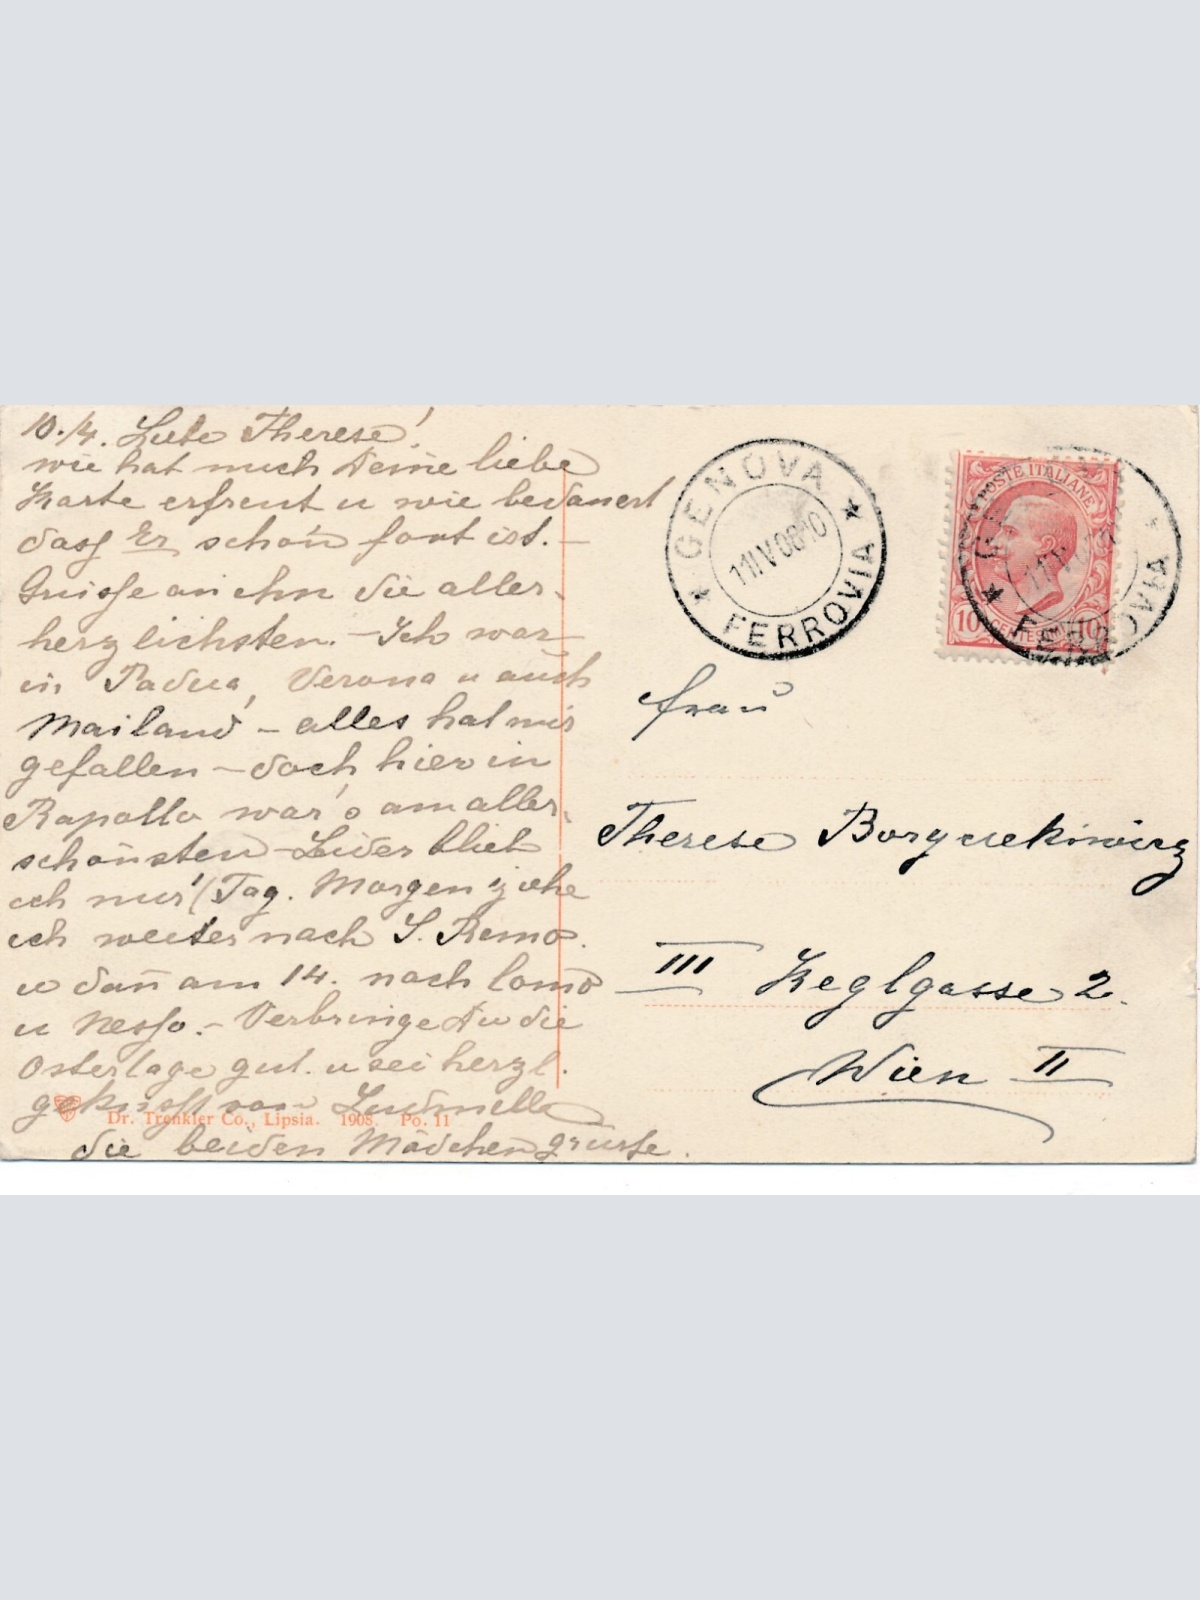 10./4. Liebe Therese!
wie hat mich Deine liebe
Karte erfreut u wie bedauert
dass Er schon fort ist. -
Grüsse an ihn die aller-
herzlichsten. - Ich war
in Padua, Verona u auch
Mailand - alles hat mir
gefallen - doch hier in
Rapallo war's am aller-
schönsten - Leider blieb
ich nur 1 Tag. Morgen ziehe
ich weiter nach S. Remo.
u dan̄ am 14. nach Como
u Nesso. - Verbringe Du die
Ostertage gut. u sei herzl.
geküsst von Ludmilla
die beiden Mädchen grüsse.
Dr. Trenkler Co., Lipsia. 1908. Po. 11
GENOVA
11 IV 08 10
FERROVIA
POSTE ITALIANE
10 CENTES 10
FERROVIA
Frau
Therese
III Keglgasse 2.
Wien II